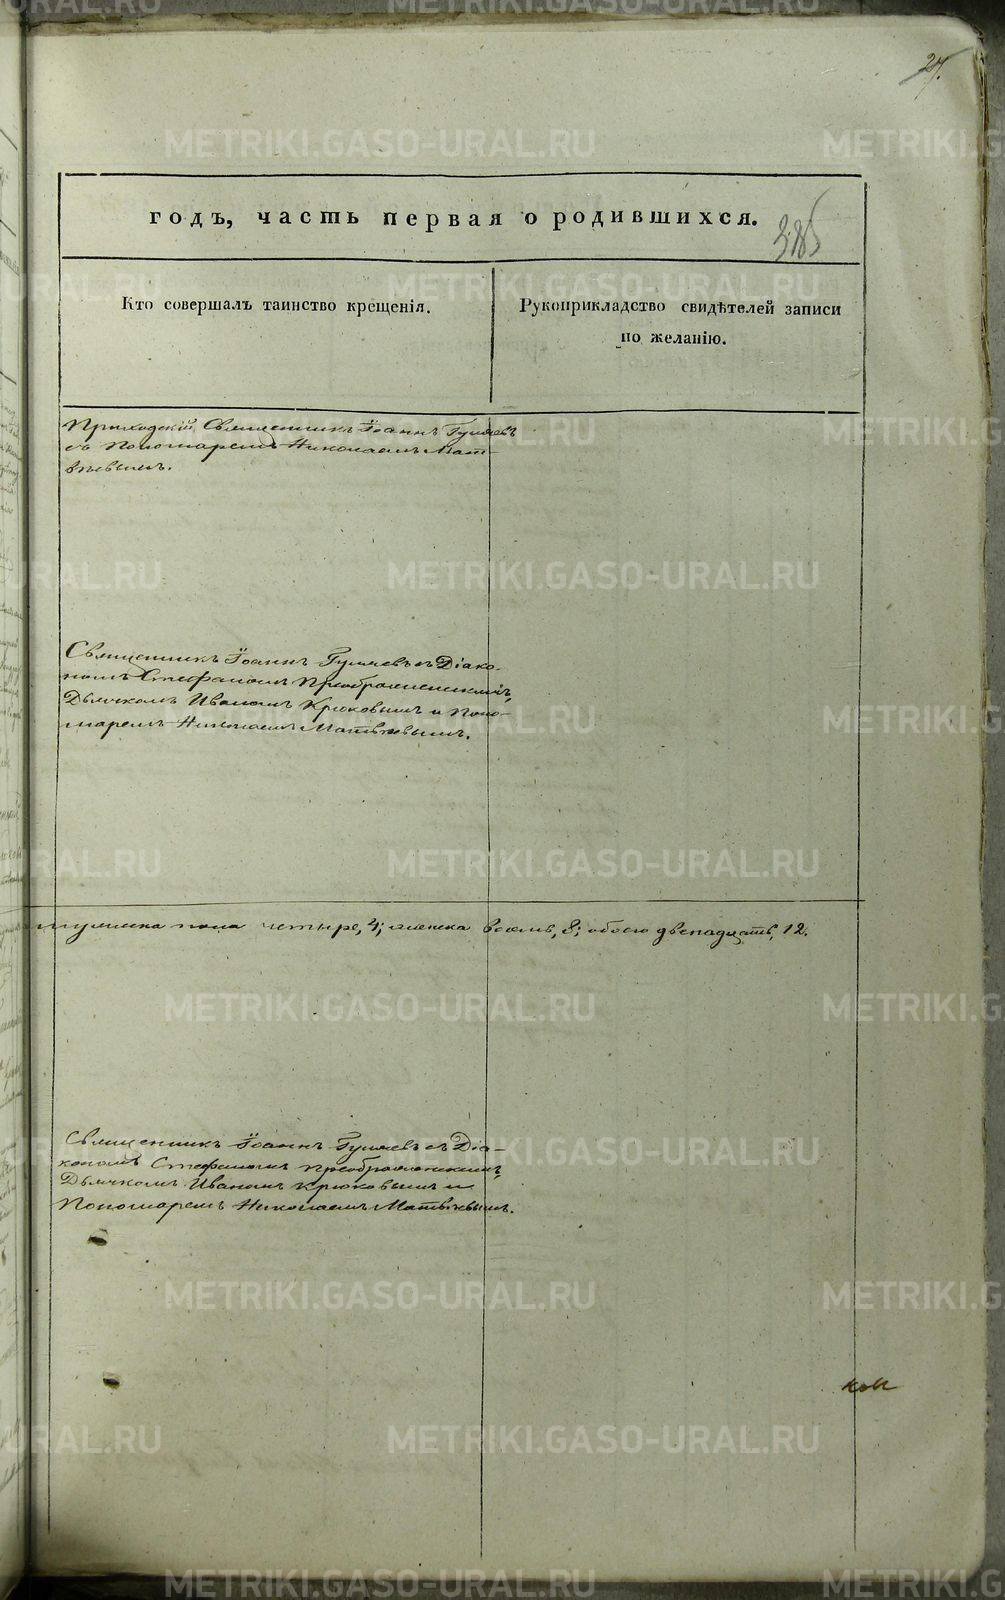 27.
годъ, часть первая о родившихся.
385
Кто совершалъ таинство крещенія.
Рукоприкладство свидѣтелей записи
по желанію.
Приходскій Священникъ Іоаннъ Гуляевъ
съ Пономаремъ Николаемъ Мат-
вѣевымъ.
Священникъ Іоаннъ Гуляевъ съ Діако-
номъ Стефаномъ Преображенскимъ,
Дьячкомъ Иваномъ Крюковымъ и Поно-
маремъ Николаемъ Матвѣевымъ.
мужеска пола четыре, 4; женска восемь, 8; обоего двенадцать, 12.
Священникъ Іоаннъ Гуляевъ съ Діа-
кономъ Стефаномъ Преображенскимъ,
Дьячкомъ Иваномъ Крюковымъ и
Пономаремъ Николаемъ Матвѣевымъ.
METRIKI.GASO-URAL.RU